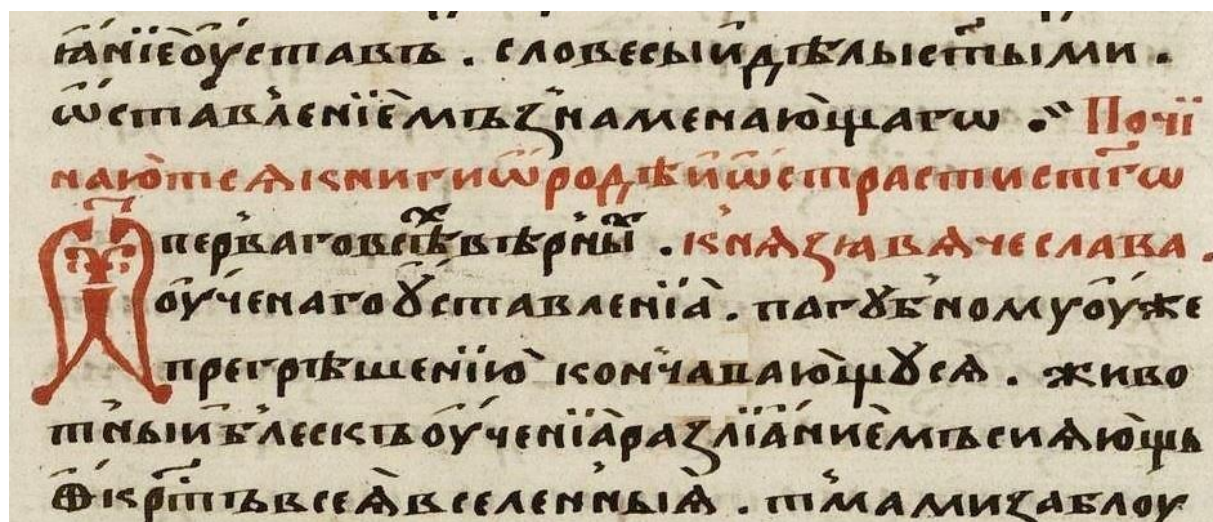 ꙗ҆нїеѻу҆ставъ . словесыи҆дѣлыст҃ыми .
ѿставлениѥ҆мъзнаменаю҆щагѡ . Почї
наю҆тсѧкнигиѡ҆родѣи҆ѡ҆страстист҃гѡ
перваговсѣⷯвѣрныⷯ . кнѧзѧвѧчеслава .
оу҆ченагоꙋставленїꙗ҆ . пагꙋбномуоу҆же
прегрѣшенїю҆ кончавающꙋсѧ . живо
тныиблескъоу҆ченїꙗ҆разлїꙗ҆ниѥ҆мъсиѧю҆щь
ѿкрⷭ҇тъвсеѧ҆вселенныѧ҆ . тмамизаблоу